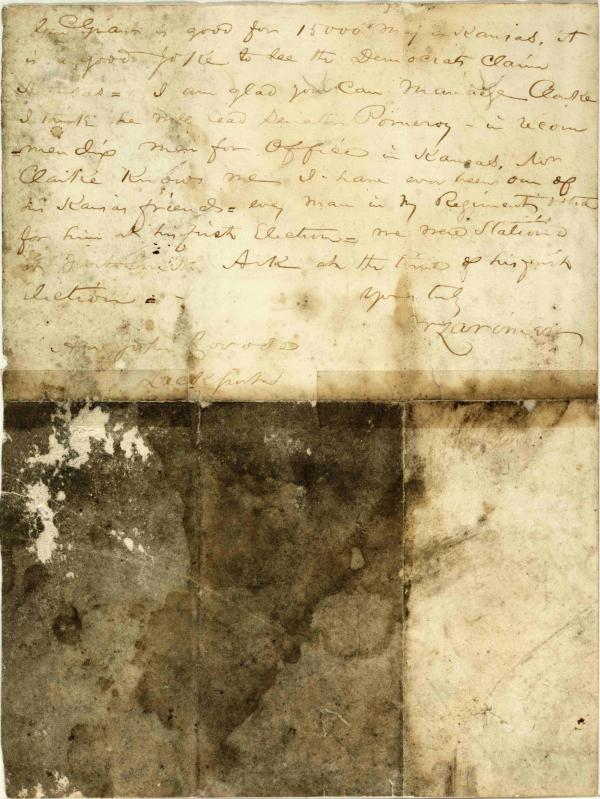 Genl Grant is good for 15000 Maj in Kansas, it
is a good Joke to see the Democrats Claim
Kansas = I am glad you Can Manage Clarke
I think he will lead Senator Pomeroy - in recom
mending men for Office in Kansas, Mr
Clarke Knows me I have ever been one of
his Kansas friends = every man in my Regiment Voted
for him at his first Election = we were Stationed
at Ark at the time of his first
election = - Yours truly
Wm Larimer
Hon John Covode
Lockport